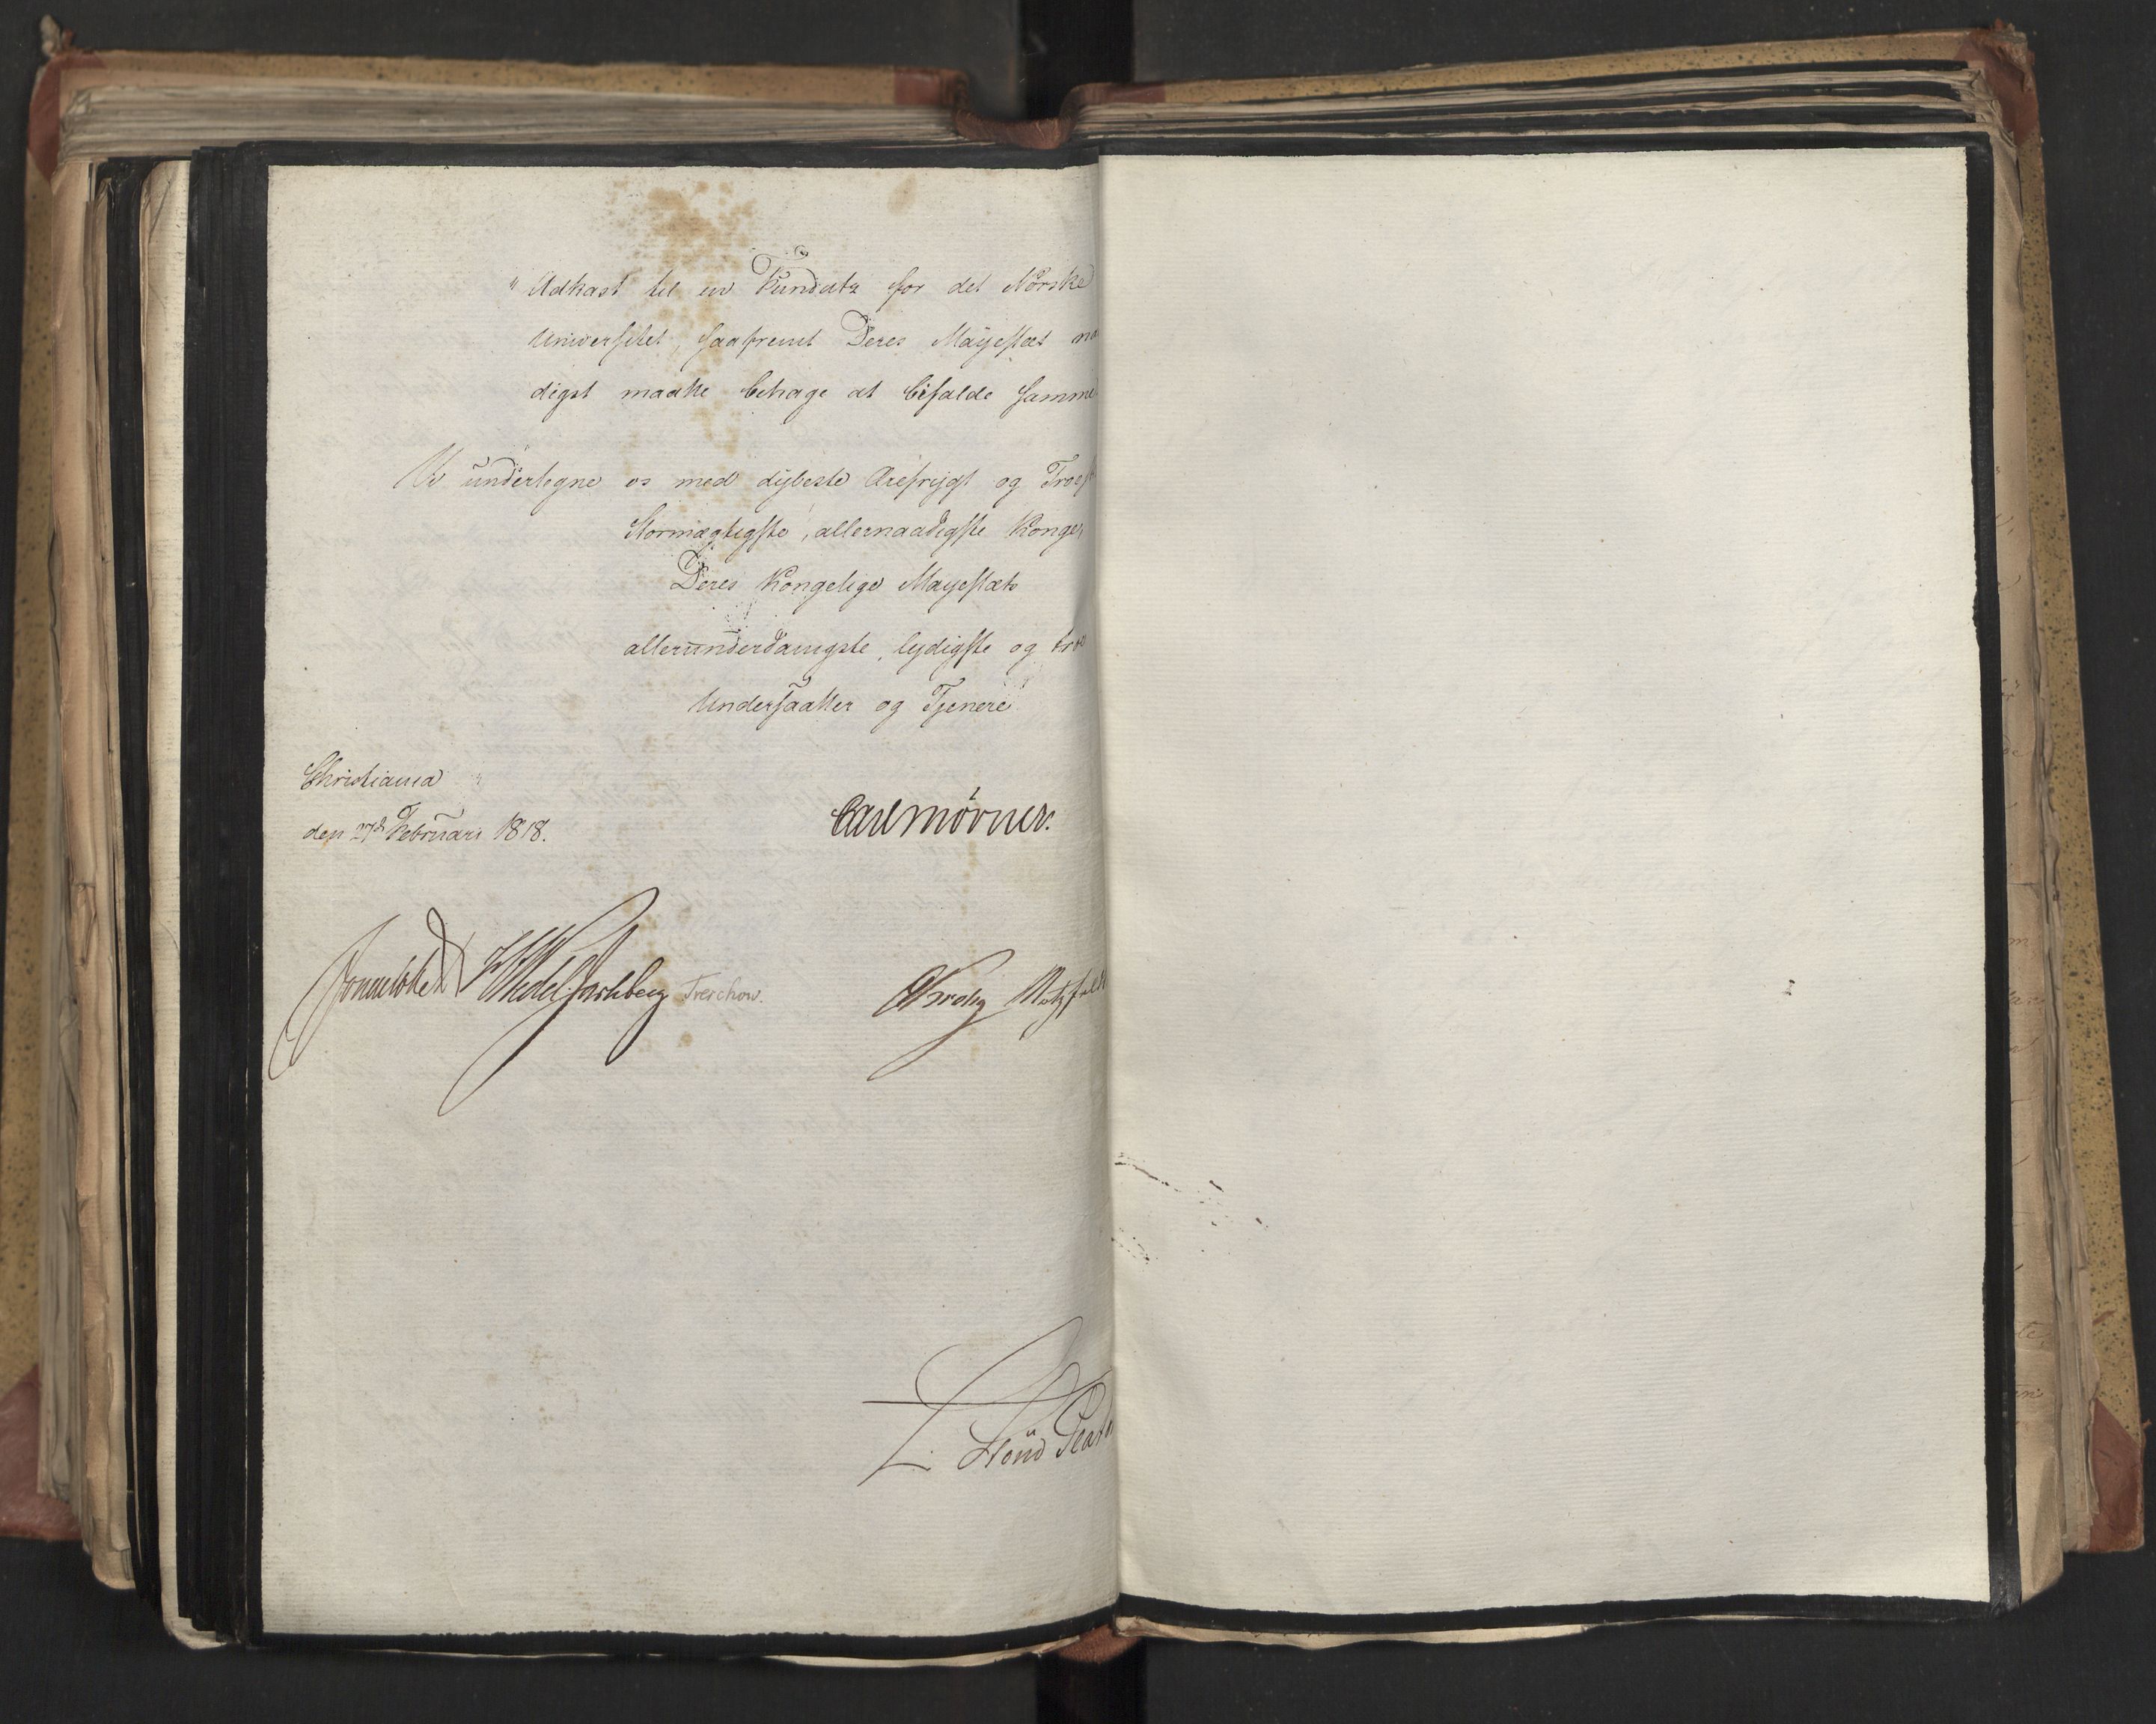 " Udkast til en Fundatz for det Norske
Universitet, saafremt Deres Mayestæt naa
digst maatte behage at bifalde samme
Vi undertegne os med dybeste Ærefrygt og Troesk
Stormægtigste, allernaadigste Konge,
Deres Kongelige Mayestæts
allerunderdanigste, lydigste og troe
Undersaatter og Tjenere
Christiania
den 27de Februari 1818.
Carl Mörner.
Sommelhielm HWedel Jarlsberg Treschow. Motzfeldt